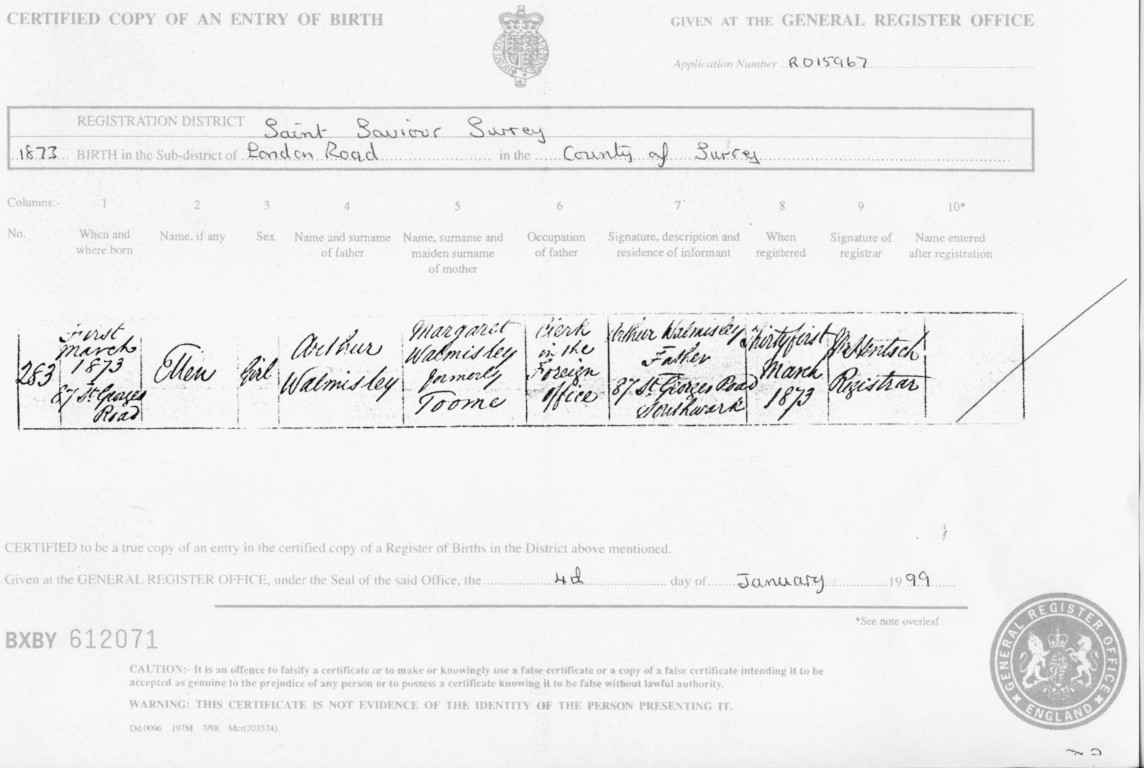 CERTIFIED COPY OF AN ENTRY OF BIRTH
GIVEN AT THE GENERAL REGISTER OFFICE
Application Number R015967
REGISTRATION DISTRICT Saint Saviour Surrey
1873 BIRTH in the Sub-district of London Road in the County of Surrey
Columns:- 1 2 3 4 5 6 7 8 9 10*
No.
When and
where born
Name, if any
Sex
Name and surname
of father
Name, surname and
maiden surname
of mother
Occupation
of father
Signature, description and
residence of informant
When
registered
Signature of
registrar
Name entered
after registration
283
First
March
1873
87 St Georges
Road
Ellen
Girl
Arthur
Walmisley
Margaret
Walmisley
formerly
Toome
Clerk
in the
Foreign
Office
Arthur Walmisley
Father
87 St Georges Road
Southwark
Thirty first
March
1873
Registrar
CERTIFIED to be a true copy of an entry in the certified copy of a Register of Births in the District above mentioned.
Given at the GENERAL REGISTER OFFICE, under the Seal of the said Office, the 4d day of January 1999
*See note overleaf
BXBY 612071
CAUTION:- It is an offence to falsify a certificate or to make or knowingly use a false certificate or a copy of a false certificate intending it to be
accepted as genuine to the prejudice of any person or to possess a certificate knowing it to be false without lawful authority.
WARNING: THIS CERTIFICATE IS NOT EVIDENCE OF THE IDENTITY OF THE PERSON PRESENTING IT.
Dd 0096 197M 7/98 Mcr(203574)
GENERAL REGISTER OFFICE
ENGLAND